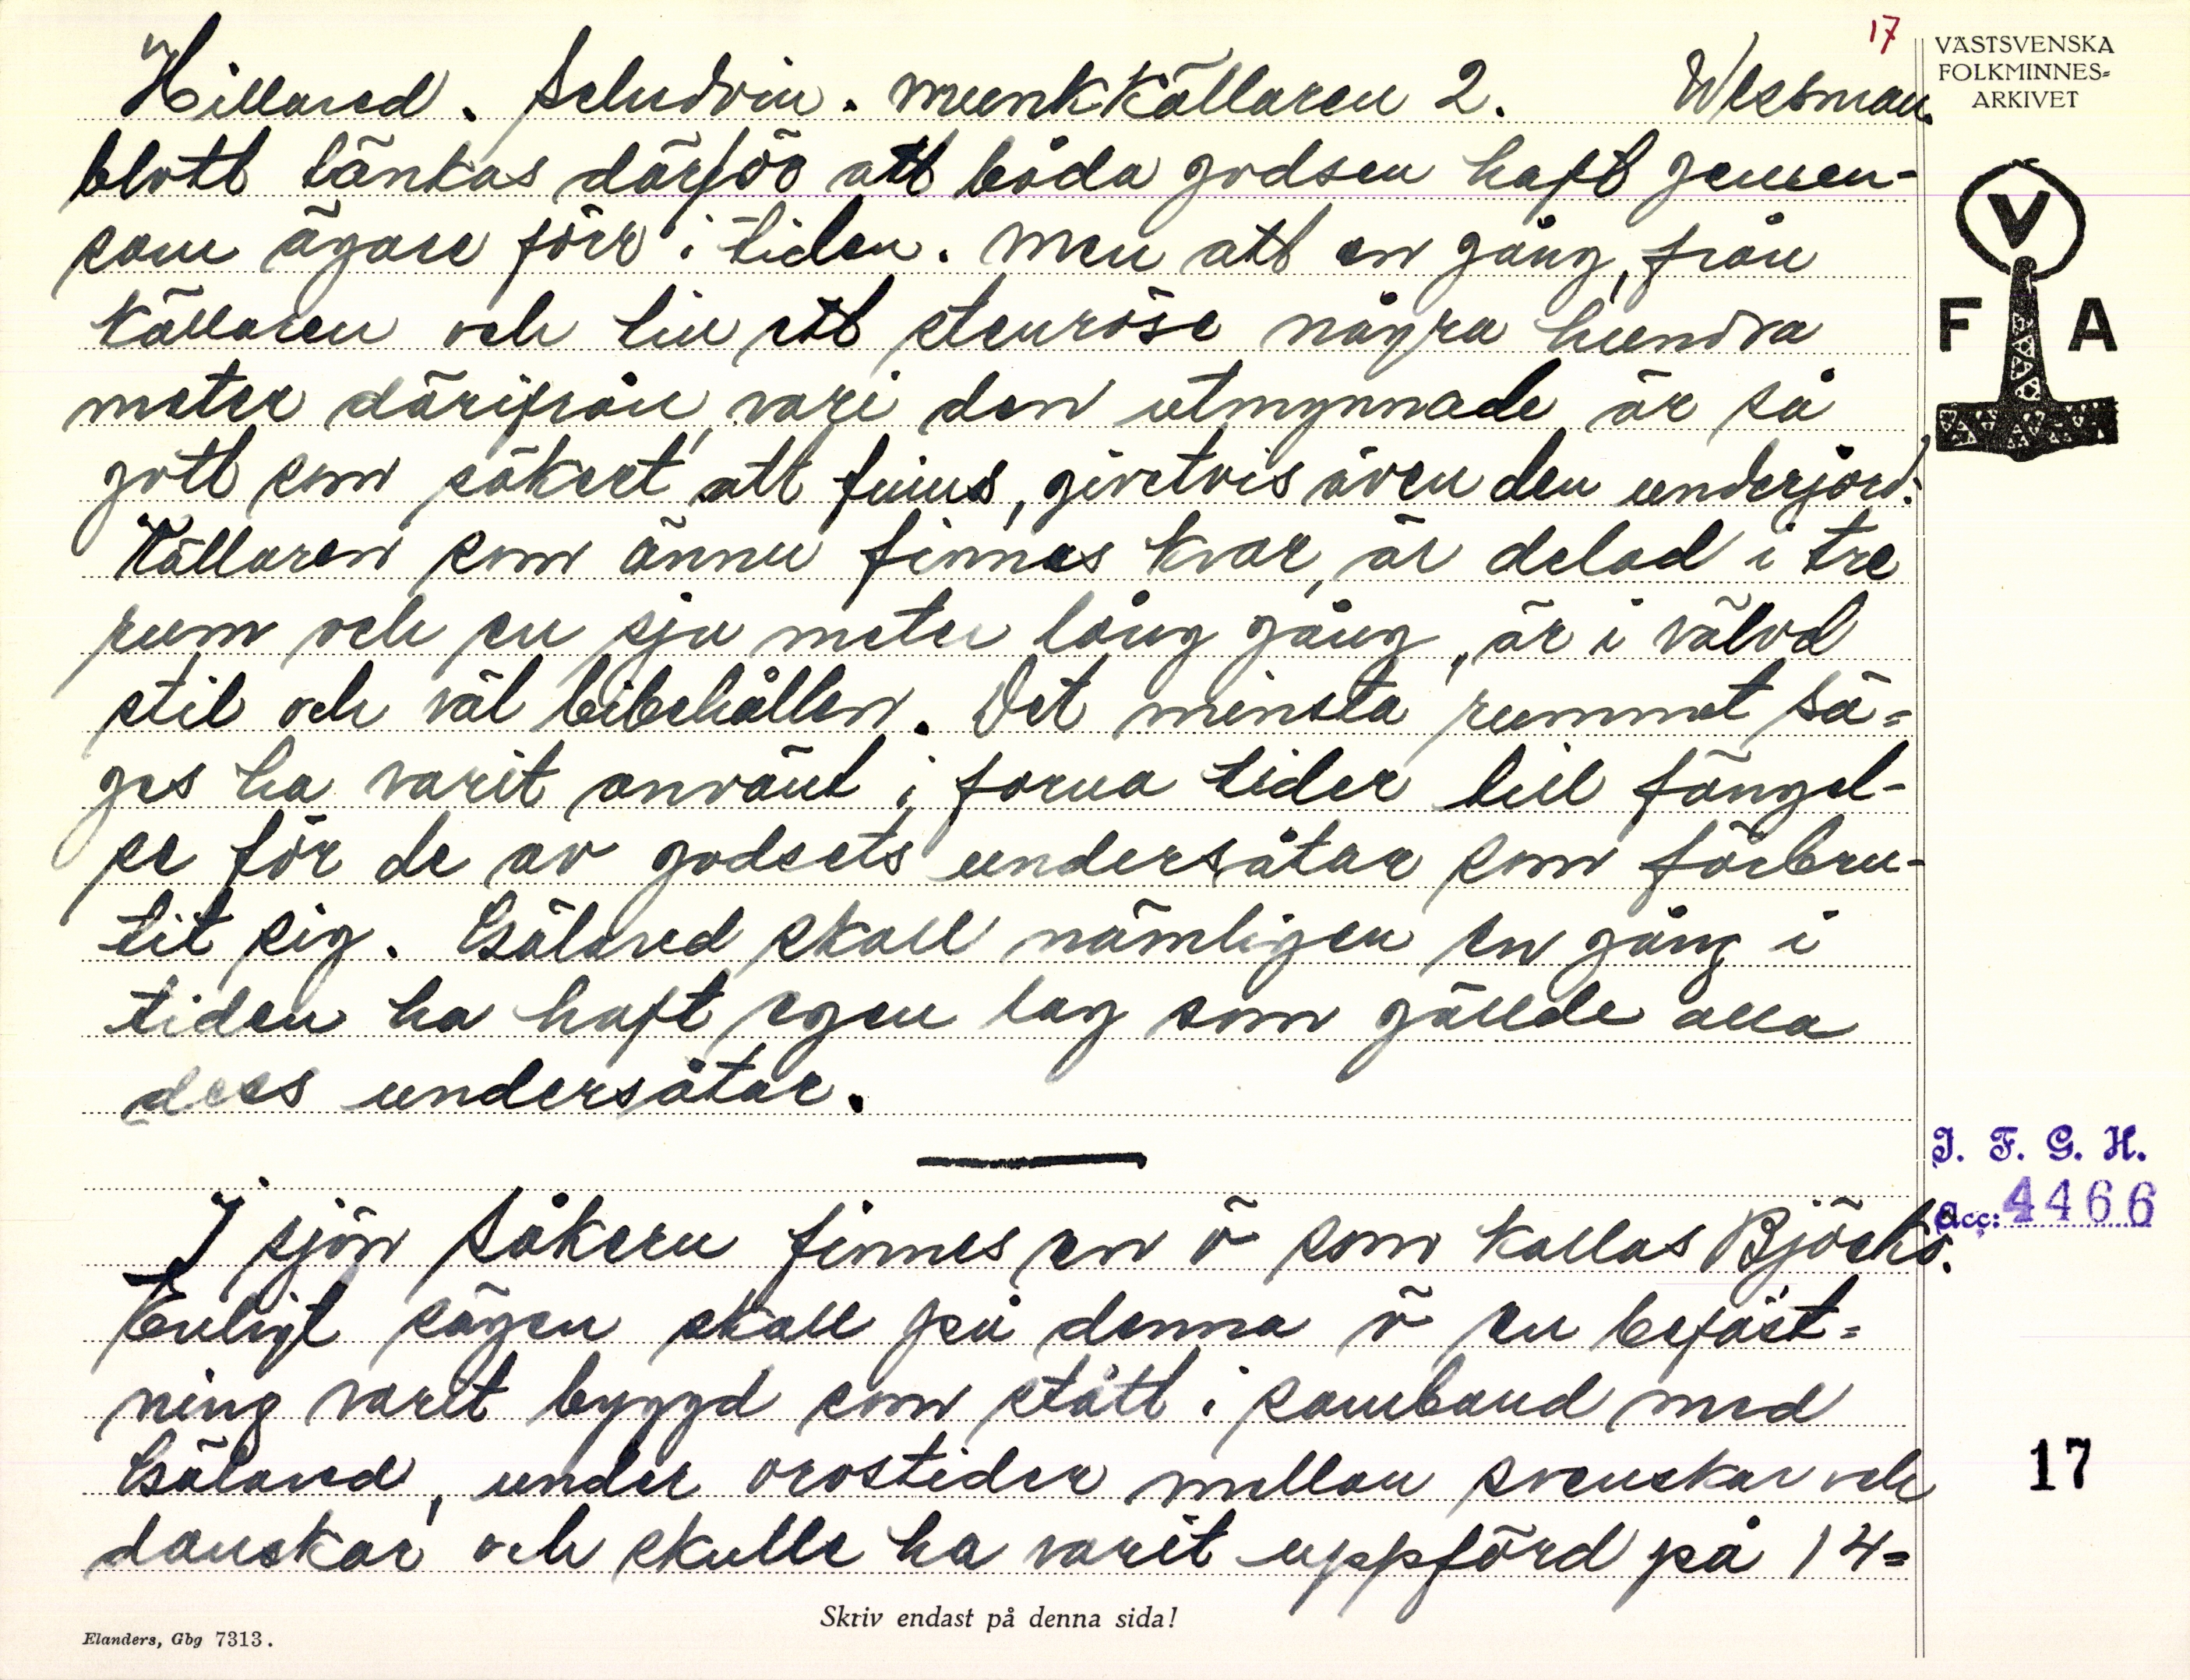 17
Hillared. Seludvin. Munkkällaren 2. Wessman.
VÄSTSVENSKA
FOLKMINNES-
ARKIVET
blott tänkas därför att båda godsen haft gemen-
sam ägare förr i tiden. Men att en gång, från
källaren och till ett stenröse några hundra
meter därifrån, vari den utmynnade är så
gott som säkert att funnits, givetvis även den underjord.
Källaren som ännu finnes kvar, är delad i tre
rum och en sju meter lång gång, är i välvd
stil och väl bibehållen. Det minsta rummet sä=
ges ha varit använt i forna tider till fängel-
se för de av godsets undersåtar som förbru-
tit sig. Gälared skall nämligen en gång i
tiden ha haft egen lag som gällde alla
dess undersåtar.
I sjön Såkern finnes en ö som kallas Björkö.
Enligt sägen skall på denna ö en befäst=
ning varit byggd som stått i samband med
Gälared, under orostider mellan svenskar och
danskar och skulle ha varit uppförd på 14=
V
F A
I. F. G. H.
Acc: 4466
17
Skriv endast på denna sida!
Elanders, Gbg 7313.